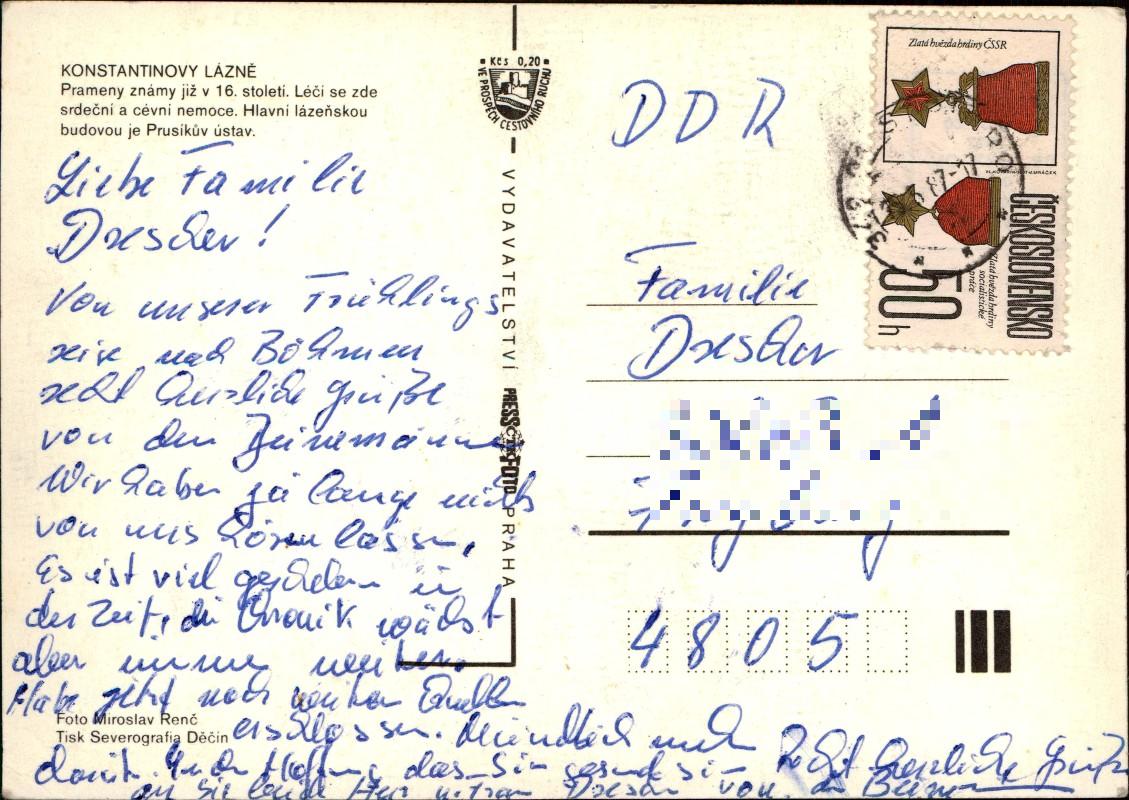 KONSTANTINOVY LÁZNĚ
Prameny známy již v 16. století. Léčí se zde
srdeční a cévní nemoce. Hlavní lázeňskou
budovou je Prusíkův ústav.
Liebe Familie
Drescher!
Von unserer Frühlings
reise nach Böhmen
recht herzliche Grüße
von den
Wir haben ja lange nichts
von uns hören lassen,
Es ist viel geschehen in
der Zeit, die Chronik wächst
aber immer weiter.
Habe jetzt noch weitere Quellen
erschlossen. Mündlich mehr
damit. In der Hoffnung, dass Sie gesund sind Recht herzliche Grüße
an Sie beide Herr u. Frau Drescher von
Foto Miroslav Renč
Tisk Severografia Děčín
Kčs 0,20
VE PROSPĚCH CESTOVNÍHO RUCHU
VYDAVATELSTVÍ PRESSFOTO PRAHA
DDR
Familie
Drescher
4805
Zlatá hvězda hrdiny ČSSR
Zlatá hvězda hrdiny
socialistické
práce
ČESKOSLOVENSKO
50 h